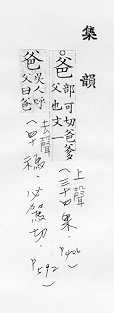 集韻
爸 部可切爸爹
父也文一
上聲（三十四果．P406）
爸 吳人呼
父曰爸
去聲（四十禡．必駕切．P592）